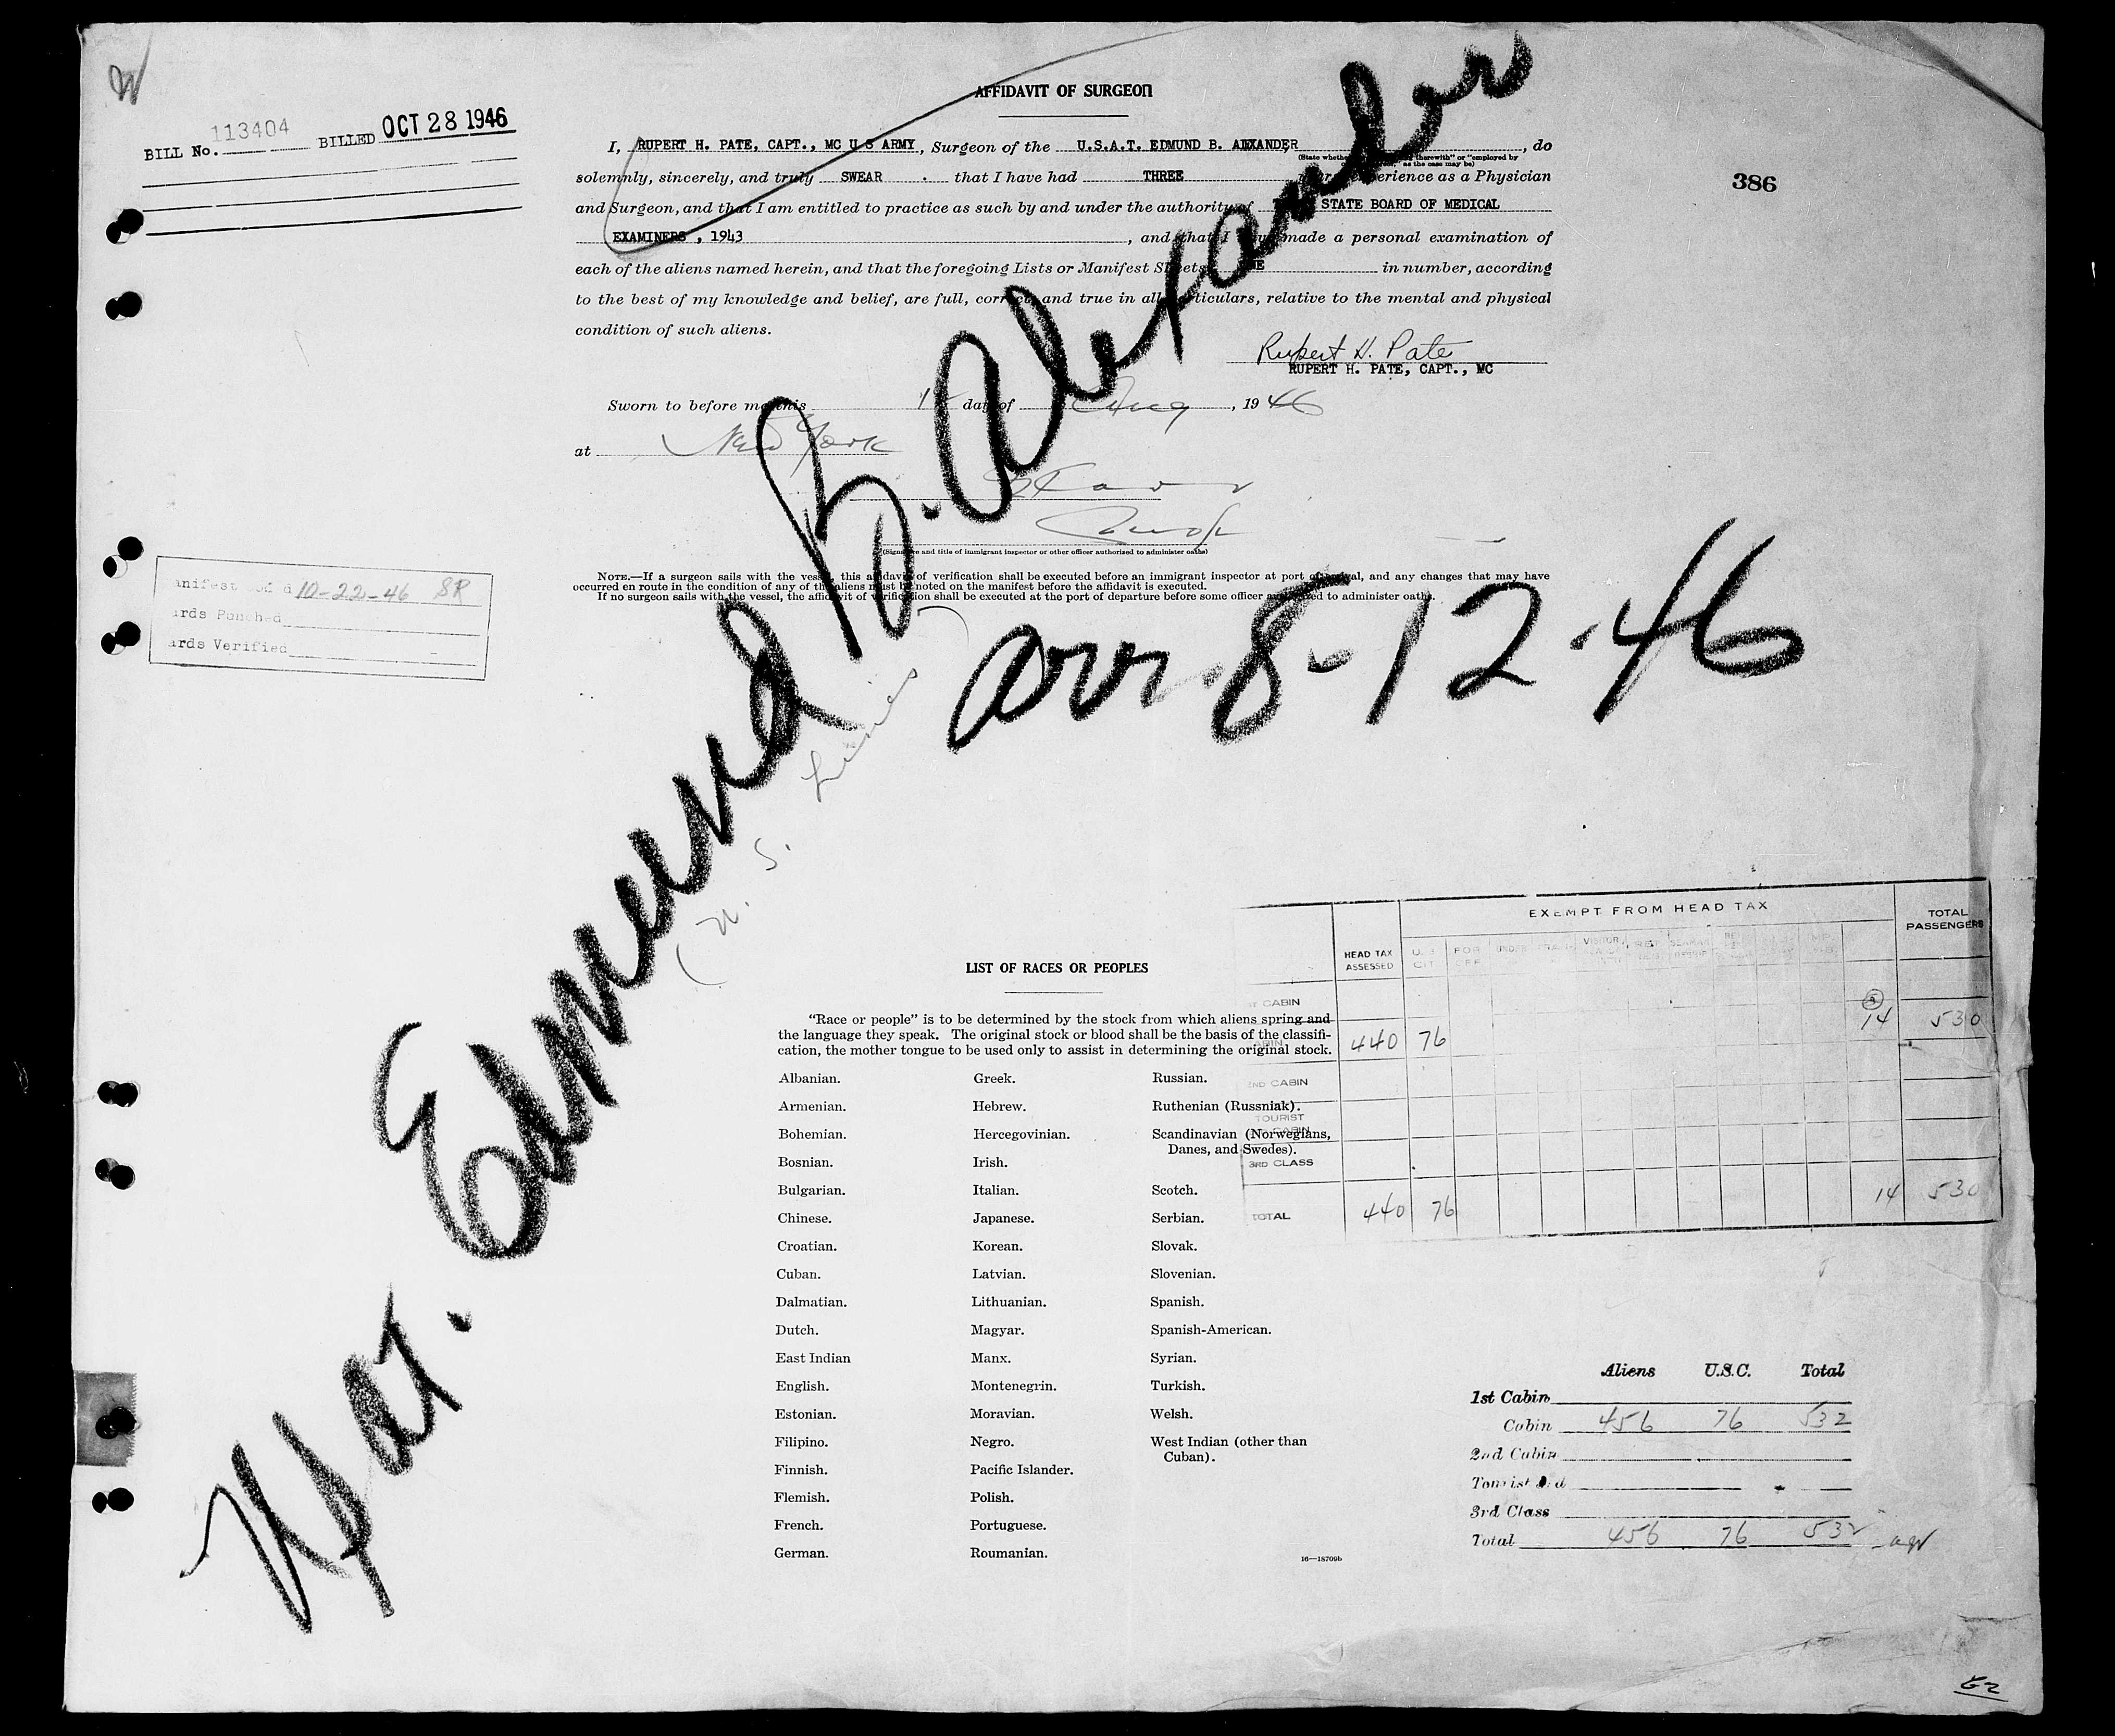 BILL No. 113404 BILLED OCT 28 1946
AFFIDAVIT OF SURGEON
386
I, RUPERT H. PATE, CAPT., MC U S ARMY, Surgeon of the U.S.A.T. EDMUND B. ALEXANDER, do
(State whether therewith" or "employed by
as the case may be)
solemnly, sincerely, and truly SWEAR that I have had THREE experience as a Physician
and Surgeon, and that I am entitled to practice as such by and under the authority of STATE BOARD OF MEDICAL
EXAMINERS, 1943, and that I have made a personal examination of
each of the aliens named herein, and that the foregoing Lists or Manifest Sheets in number, according
to the best of my knowledge and belief, are full, correct, and true in all particulars, relative to the mental and physical
condition of such aliens.
Rupert H. Pate
RUPERT H. PATE, CAPT., MC
Sworn to before me this day of Aug, 1946
at New York
(Signature and title of immigrant inspector or other officer authorized to administer oaths)
NOTE.—If a surgeon sails with the vessel, this affidavit of verification shall be executed before an immigrant inspector at port of arrival, and any changes that may have
occurred en route in the condition of any of the aliens must be noted on the manifest before the affidavit is executed.
If no surgeon sails with the vessel, the affidavit of verification shall be executed at the port of departure before some officer authorized to administer oaths.
anifest 10-22-46 SR
ards Punched
ards Verified
Edmund B. Alexander
arr. 8-12-46
(U. S. Lines)
LIST OF RACES OR PEOPLES
"Race or people" is to be determined by the stock from which aliens spring and
the language they speak. The original stock or blood shall be the basis of the classifi-
cation, the mother tongue to be used only to assist in determining the original stock.
Albanian.
Armenian.
Bohemian.
Bosnian.
Bulgarian.
Chinese.
Croatian.
Cuban.
Dalmatian.
Dutch.
East Indian
English.
Estonian.
Filipino.
Finnish.
Flemish.
French.
German.
Greek.
Hebrew.
Hercegovinian.
Irish.
Italian.
Japanese.
Korean.
Latvian.
Lithuanian.
Magyar.
Manx.
Montenegrin.
Moravian.
Negro.
Pacific Islander.
Polish.
Portuguese.
Roumanian.
Russian.
Ruthenian (Russniak).
Scandinavian (Norwegians,
Danes, and Swedes).
Scotch.
Serbian.
Slovak.
Slovenian.
Spanish.
Spanish-American.
Syrian.
Turkish.
Welsh.
West Indian (other than
Cuban).
16—18709b
EXEMPT FROM HEAD TAX
TOTAL
PASSENGERS
HEAD TAX
ASSESSED
U. S.
CIT
FOR
OFF
CABIN
440 76 14 530
2ND CABIN
TOURIST
CABIN
3RD CLASS
TOTAL 440 76 14 530
Aliens U.S.C. Total
1st Cabin
Cabin 456 76 532
2nd Cabin
Tourist
3rd Class
Total 456 76 532